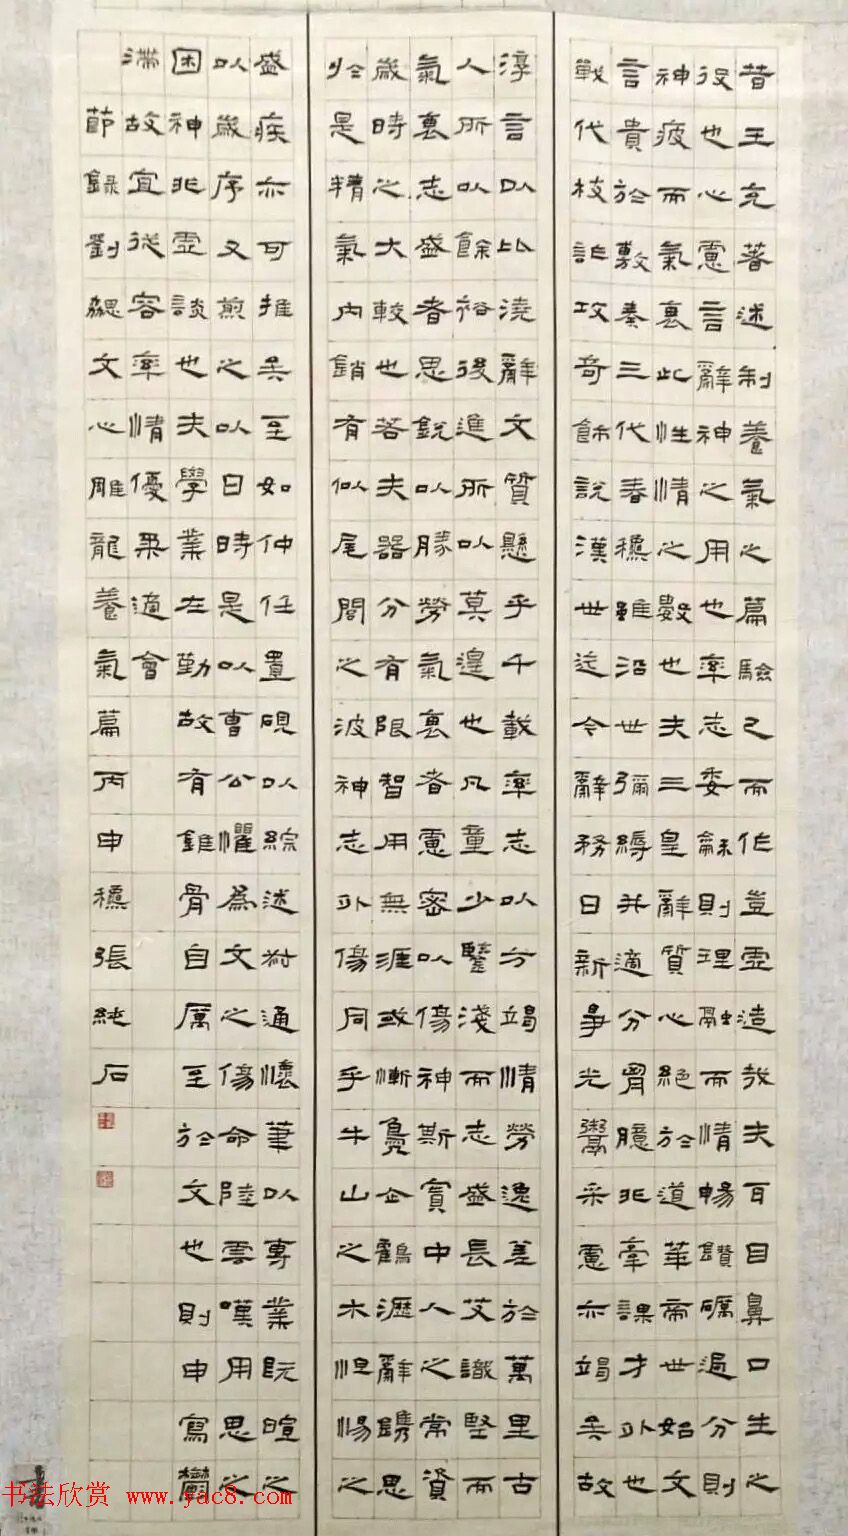 昔王充著述制養氣之篇驗己而作豈虛造哉夫耳目鼻口生之
役也心慮言辭神之用也率志委龢則理融而情暢鑽礪過分則
神疲而氣衰此性情之數也夫三皇辭質心絕於道華帝世始文
言貴於敷奏三代春穐雖沿世彌縟并適分胸臆非牽課才外也
戰代枝詐攻奇飾說漢世迄今辭務日新爭光鬻采慮亦竭矣故
淳言以比澆辭文質懸乎千載率志以方竭情勞逸差於萬里古
人所以餘裕後進所以莫遑也凡童少鑒淺而志盛長艾識堅而
氣衰志盛者思銳以勝勞氣衰者慮密以傷神斯實中人之常資
歲時之大較也若夫器分有限智用無涯或慚鳧企鶴瀝辭鐫思
於是精氣內銷有似尾閭之波神志外傷同乎牛山之木怛惕之
盛疾亦可推矣至如仲任置硯以綜述叔通懷筆以專業既暄之
以歲序又煎之以日時是以曹公懼為文之傷命陸雲嘆用思之
困神非虛談也夫學業在勤故有錐骨自厲至於文也則申寫鬱
滯故宜從容率情優柔適會
節錄劉勰文心雕龍養氣篇丙申穐張純石
书法欣赏 www.yac8.com